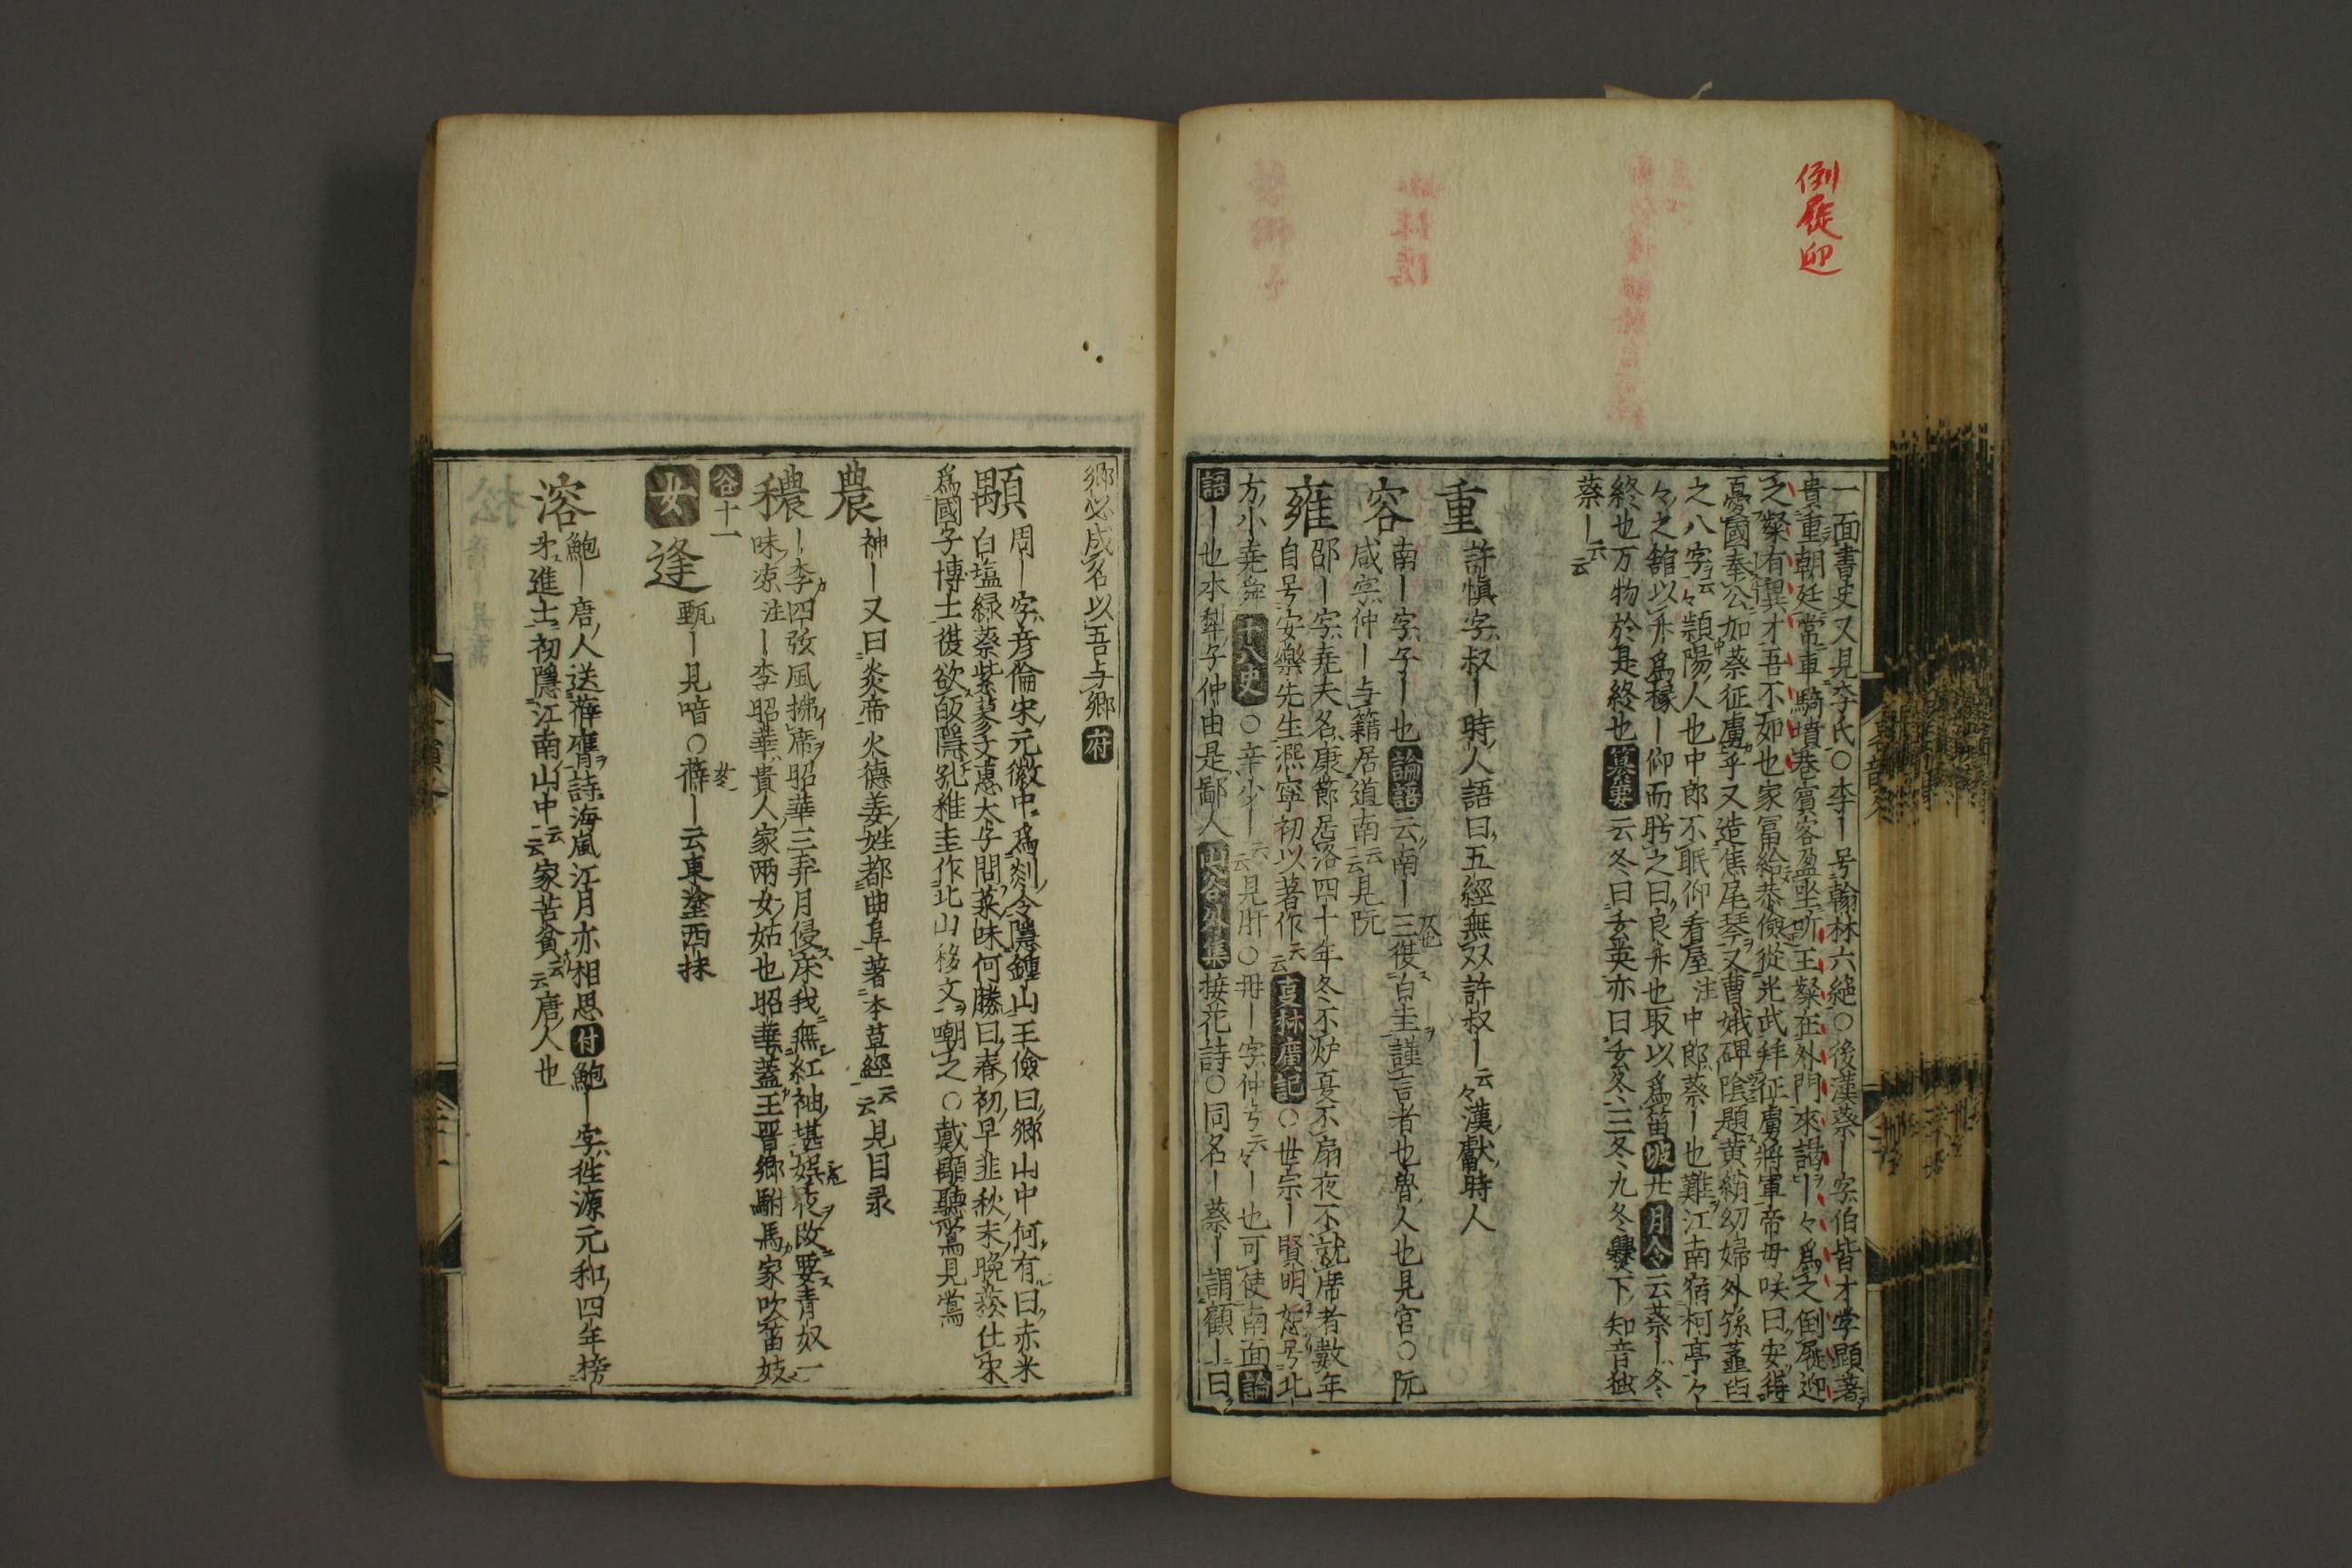 倒屣迎
一面書史又見李氏○李｜号翰林六絶○後漢蔡｜字伯皆才学顕著
貴重朝廷常車騎填巷賓客盈坐听王粲在外門來謁｜々爲之倒屣迎
之粲有異才吾不如也家冨給恭儉從光武拜征虜將軍帝毋咲曰安得
憂國奉公如蔡征虜乎又造焦尾琴又曹娥碑陰題黄絹幼婦外孫韲臼
之八字云々頴陽人也中郎不眠仰看屋注中郎蔡｜也難江南宿柯亭々
々之舘以竹爲椽｜仰而眄之曰良竹也取以爲笛坡廿月令云蔡｜冬
終也万物於是終也纂要云冬曰玄英亦曰玄冬三冬九冬爨下知音独
蔡｜云云
重 許愼字叔｜時人語曰五經無双許叔｜云々漢獻時人
容 南｜字子｜也論語云南｜三復白圭謹言者也魯人也見宮○阮
咸字仲｜与籍居道南云云見阮
雍 邵｜字尭夫名康節居洛四十年冬不炉夏不扇夜不就席者數年
自号安樂先生凞寧初以著作云云夏林廣記○世宗｜賢明恕号北
方小堯舜十八史○辛小｜云云見肝○冊｜字仲弓云々｜也可使南面論
語｜也本犁子仲由是鄙人山谷外集接花詩○同名｜蔡｜謂顧｜曰
郷必成名以吾与郷府
顒 周｜字彦倫宋元徽中爲剡令隱鍾山王儉曰郷山中何有曰赤米
白塩緑葵紫蓼文惠太子問菜味何勝曰春初早韭秋末晩菘仕宋
爲國子博士復欲皈隱孔稚圭作北山移文嘲之○戴顒聽鶯見鶯
農 神｜又曰炎帝火德姜姓都曲阜著本草經云云見目录
穠 ｜李四弦風拂席昭華三弄月侵床我無紅袖堪娯夜政要青奴一
味凉注｜李昭華貴人家兩女姑也昭華蓋王晋郷駙馬家吹笛妓
谷十一
女 逢 甄｜見喑○｜云東塗西抹
溶 鮑｜唐人送薛膺詩海嵐江月亦相思付鮑｜字德源元和四年榜
才進士初隱江南山中云云家苦貧云云唐人也